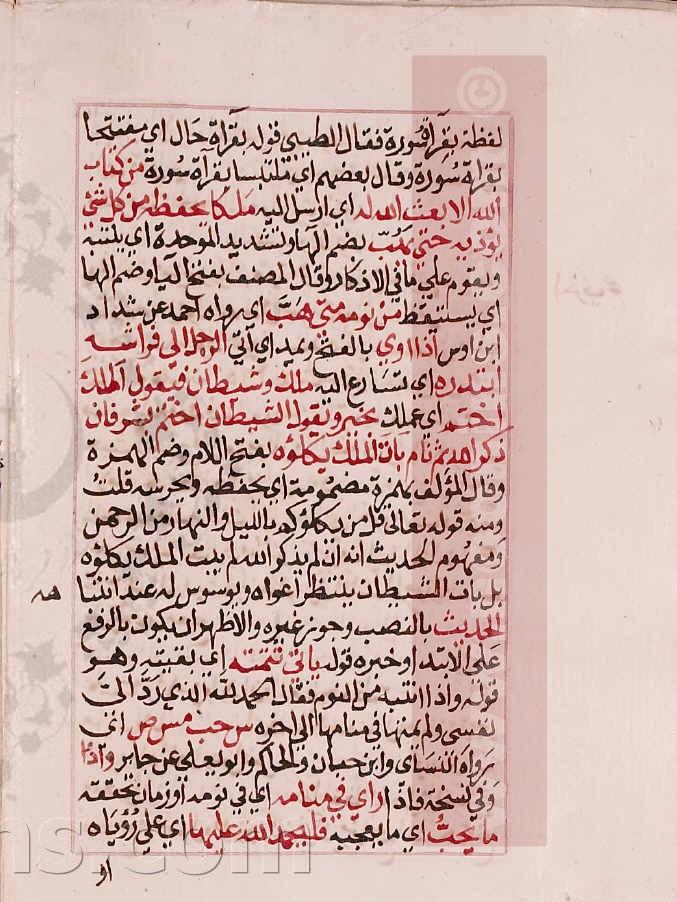 لفظة بقراءة سورة فقال الطيبي قوله بقراة حال اي مفتتحا
بقراة سورة وقال بعضهم اي متلبسا بقراة سورة من كتاب
الله الا بعث الله له اي ارسل اليه ملكا يحفظه من كل شئ
يؤذيه حتى يهب بضم الها وتشديد الموحدة اي ينتبه
ويقوم علي ما في الاذكار وقال المصنف بفتح اليا وضم الها
اي يستيقظ من نومه متى هب اي رواه احمد عن شداد
ابن اوس اذا اوي بالفتح ويمد اي آتي الرجل الى فراشه
ابتدره اي تسارع اليه ملك وشيطان فيقول الملك
اختم اي عملك بخير ويقول الشيطان اختم بشر فان
ذكر الله ثم نام بات الملك يكلؤه بفتح اللام وضم الهمزة
وقال المؤلف بهمزة مضمومة اي يحفظه ويحرسه قلت
ومنه قوله تعالى قل من يكلؤكم بالليل والنهار من الرحمن
ومفهوم الحديث انه ان لم يذكر الله لم يبت الملك يكلؤه
بل بات الشيطان ينتظر اغواه ويوسوس له عند انتبا
هه
الحديث بالنصب وجوز غيره والاظهر ان يكون بالرفع
على الابتدا وخبره قوله ياتي تتمته اي بقيته وهو
قوله واذا انتبه من النوم فقال الحمد لله الذي رد الى
نفسي ولم يمتها في منامها الى اخره س حب مس ص اي
رواه النساي وابن حبان والحاكم وابو يعلي عن جابر واذا
وفي نسخة فاذا راي في منامه اي في نومه او زمان تحققه
ما يحب اي ما يعجبه فليحمد الله عليها اي علي رؤياه
او
ns.com